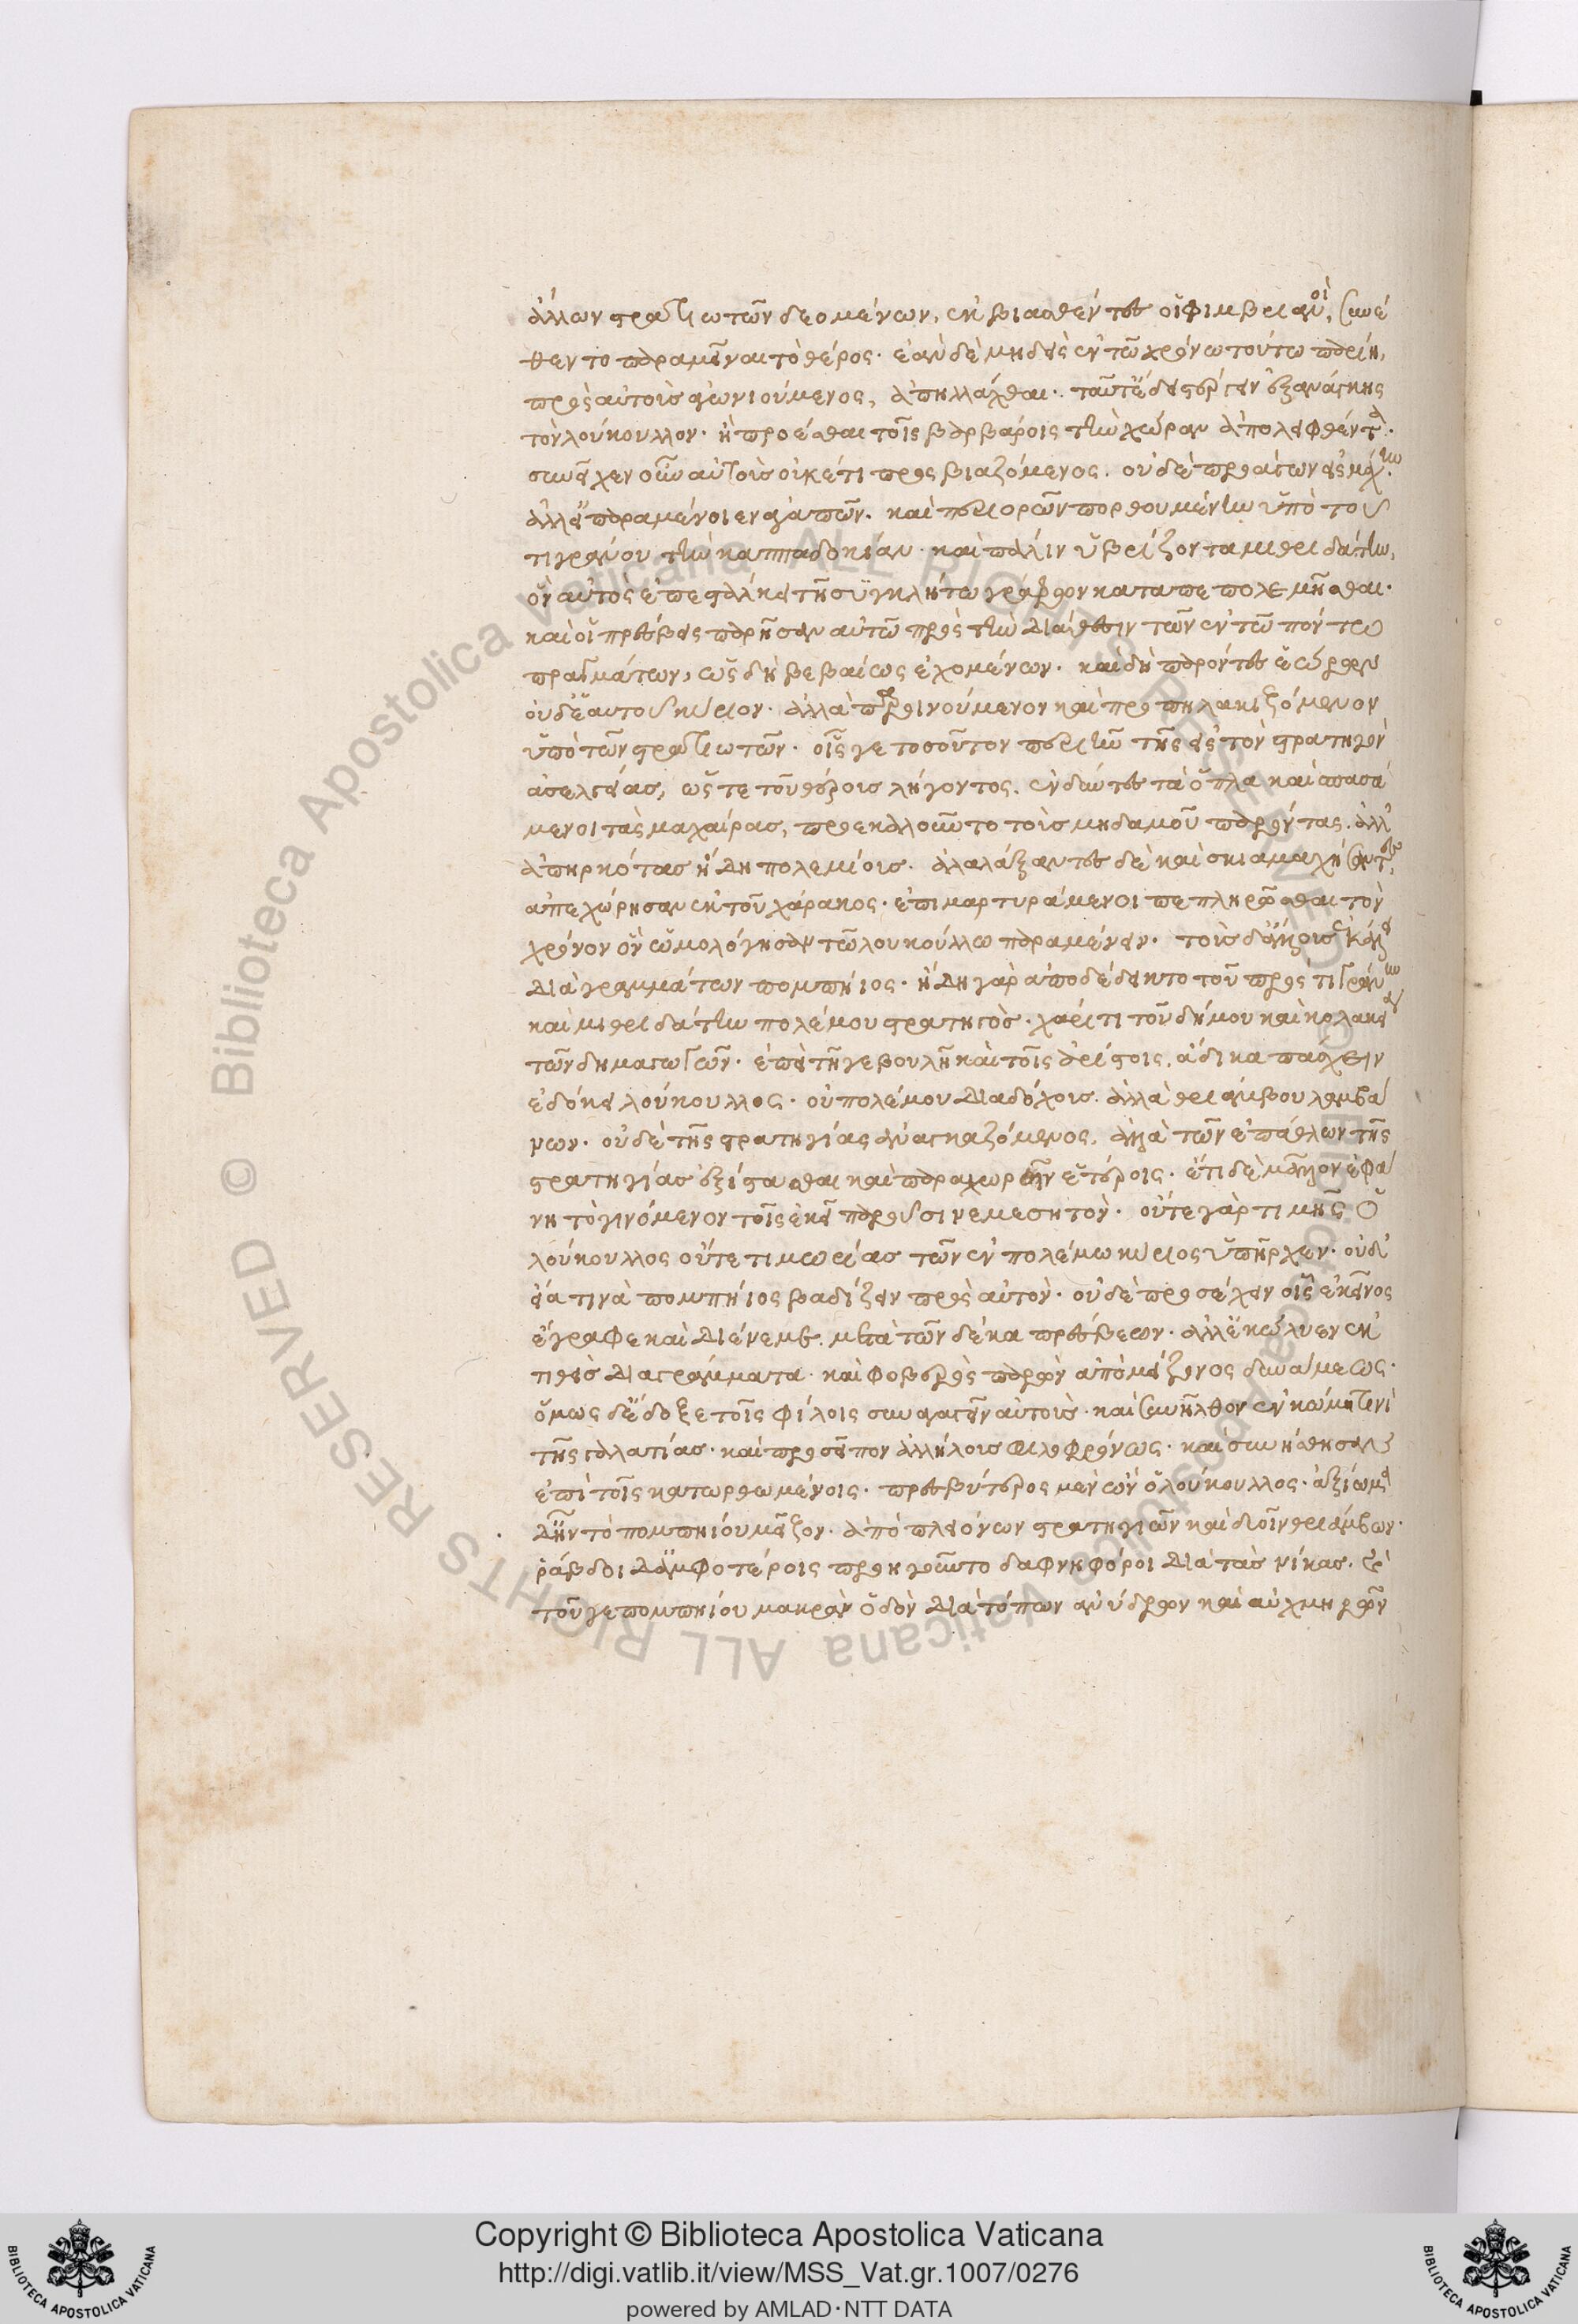 ἄλλων στρατιωτῶν δεομένων, ἐκβιασθέντες οἱ φιμβριανοὶ, συνέ
θεντο παραμεῖναι τὸ θέρος. ἐὰν δὲ μηδεὶς ἐν τῶ χρόνω τούτω παρείη,
πρὸς αὐτοὺς ἀγωνιούμενος, ἀπηλλάχθαι. ταῦτ' ἔδει στέργειν ἐξανάγκης
τὸν λούκουλλον. ἢ προέσθαι τοῖς βαρβάροις τὴν χώραν ἀπολειφθέντα.
συνεῖχεν οὖν αὐτοὺς οὐκέτι προσβιαζόμενος. οὐδὲ προσάγων εἰς μάχην.
ἀλλ' εἰ παραμένοιεν ἀγαπῶν. καὶ περιορῶν πορθουμένην ὑπὸ τοῦ
τιγράνου τὴν καππαδοκίαν. καὶ πάλιν ὑβρίζοντα μιθριδάτην,
ὃν αὐτὸς ἐπεστάλκει τῆ συγκλήτω γράφων καταπεπολεμῆσθαι.
καὶ οἱ πρέσβεις παρῆσαν αὐτῶ πρὸς τὴν διάθεσιν τῶν ἐν τῶ πόντω
πραγμάτων, ὡς δὴ βεβαίως ἐχομένων. καὶ δὴ παρόντες ἑώρων
οὐδ' αὑτοῦ κύριον. ἀλλὰ παροινούμενον καὶ προπηλακιζόμενον
ὑπὸ τῶν στρατιωτῶν. οἷς γε τοσοῦτον περιῆν τῆς εἰς τὸν στρατηγὸν
ἀσελγείας, ὥστε τοῦ θέρους λήγοντος. ἐνδύντες τὰ ὅπλα καὶ σπασά
μενοι τὰς μαχαίρας, προεκαλοῦντο τοὺς μηδαμοῦ παρόντας. ἀλλ'
ἀπηρκότας ἤδη πολεμίους. ἀλαλάξαντες δὲ καὶ σκιαμαχήσαντες,
ἀπεχώρησαν ἐκ τοῦ χάρακος. ἐπιμαρτυράμενοι πεπληρῶσθαι τὸν
χρόνον ὃν ὡμολόγησαν τῶ λουκούλλω παραμένειν. τοὺς δ' ἄλλους ἐκάλει
διὰ γραμμάτων πομπήιος. ἤδη γὰρ ἀποδέδεικτο τοῦ πρὸς τιγράνην
καὶ μιθριδάτην πολέμου στρατηγὸς. χάριτι τοῦ δήμου καὶ κολακεία
τῶν δημαγωγῶν. ἐπεὶ τῆ γε βουλῆ καὶ τοῖς ἀρίστοις, ἄδικα πάσχειν
ἐδόκει λούκουλλος. οὐ πολέμου διαδόχους. ἀλλὰ θριάμβου λαμβά
νων. οὐδὲ τῆς στρατηγίας ἀναγκαζόμενος, ἀλλὰ τῶν ἐπάθλων τῆς
στρατηγίας ἐξίστασθαι καὶ παραχωρεῖν ἑτέροις. ἔτι δὲ μᾶλλον ἐφά
νη τὸ γινόμενον τοῖς ἐκεῖ παροῦσι νεμεσητὸν. οὔτε γὰρ τιμῆς ὁ
λούκουλλος οὔτε τιμωρίας τῶν ἐν πολέμω κύριος ὑπῆρχεν. οὐδ'
εἴα τινὰ πομπήιος βαδίζειν πρὸς αὐτὸν. οὐδὲ προσέχειν οἷς ἐκεῖνος
ἔγραφε καὶ διένεμε. μετὰ τῶν δέκα πρέσβεων. ἀλλ' ἐκώλυεν ἐκ
τιθεὶς διαγράμματα. καὶ φοβερὸς παρὼν ἀπὸ μείζονος δυνάμεως.
ὅμως δ' ἔδοξε τοῖς φίλοις συναγαγεῖν αὐτοὺς. καὶ συνῆλθον ἐν κώμη τινὶ
τῆς γαλατίας. καὶ προσεῖπον ἀλλήλους φιλοφρόνως. καὶ συνήσθησαν
ἐπὶ τοῖς κατωρθωμένοις. πρεσβύτερος μὲν ὢν ὁ λούκουλλος. ἀξίωμα
δ' ἦν τὸ πομπηίου μεῖζον. ἀπὸ πλειόνων στρατηγιῶν καὶ δυοῖν θριάμβων.
ῥάβδοι δ' ἀμφοτέροις προηγοῦντο δαφνηφόροι διὰ τὰς νίκας. καὶ
τοῦ γε πομπηίου μακρὰν ὁδὸν διὰ τόπων ἀνύδρων καὶ αὐχμηρῶν
Copyright © Biblioteca Apostolica Vaticana
http://digi.vatlib.it/view/MSS_Vat.gr.1007/0276
powered by AMLAD·NTT DATA